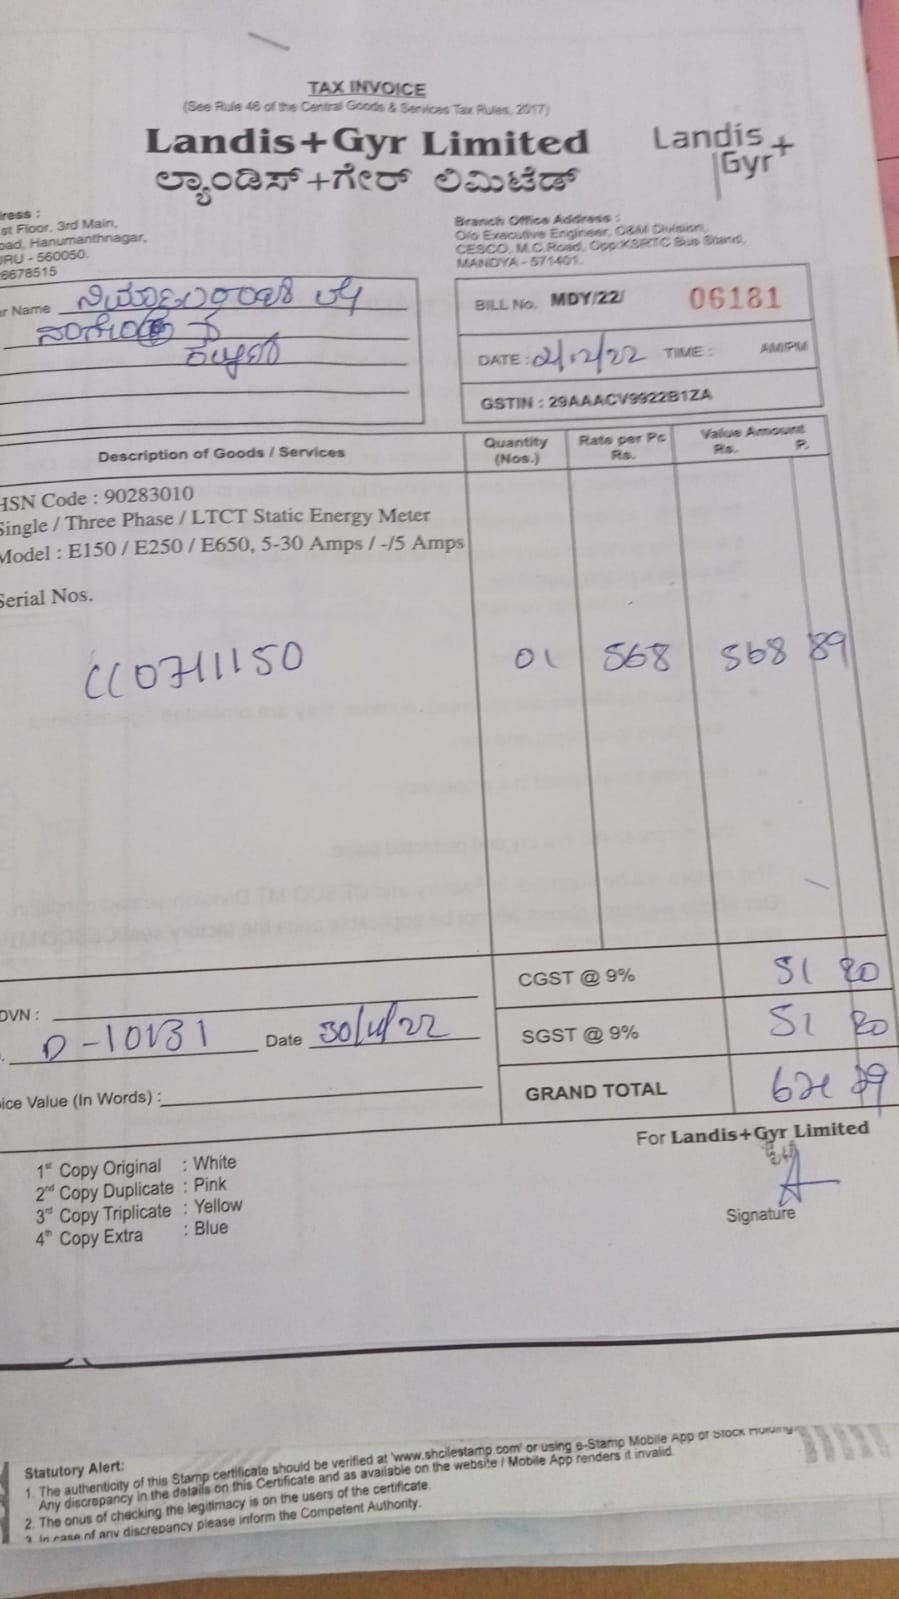 TAX INVOICE
(See Rule 46 of the Central Goods & Services Tax Rules, 2017)
Landis+Gyr Limited
ಲ್ಯಾಂಡಿಸ್+ಗೇರ್ ಲಿಮಿಟೆಡ್
Landis
Gyr+
ress :
st Floor, 3rd Main,
oad, Hanumanthnagar,
URU - 560050.
6678515
Branch Office Address :
O/o Executive Engineer, O&M Division,
CESCO, M.C.Road, Opp:KSRTC Bus Stand,
MANDYA - 571401.
r Name
BILL No. MDY/22/ 06181
DATE : 02/12/22 TIME : AM/PM
GSTIN : 29AAACV9922B1ZA
Description of Goods / Services
Quantity (Nos.)
Rate per Pc Rs.
Value Amount Rs. P.
HSN Code : 90283010
Single / Three Phase / LTCT Static Energy Meter
Model : E150 / E250 / E650, 5-30 Amps / -/5 Amps
Serial Nos.
CC0711150 01 568 568 89
CGST @ 9% 51 20
DVN :
SGST @ 9% 51 20
D-10131 Date 30/11/22
GRAND TOTAL
ice Value (In Words) :
For Landis+Gyr Limited
1st Copy Original : White
2nd Copy Duplicate : Pink
3rd Copy Triplicate : Yellow
4th Copy Extra : Blue
Signature
Statutory Alert:
1. The authenticity of this Stamp certificate should be verified at 'www.shcilestamp.com' or using e-Stamp Mobile App of Stock Holding
Any discrepancy in the details on this Certificate and as available on the website / Mobile App renders it invalid.
2. The onus of checking the legitimacy is on the users of the certificate.
3. In case of any discrepancy please inform the Competent Authority.